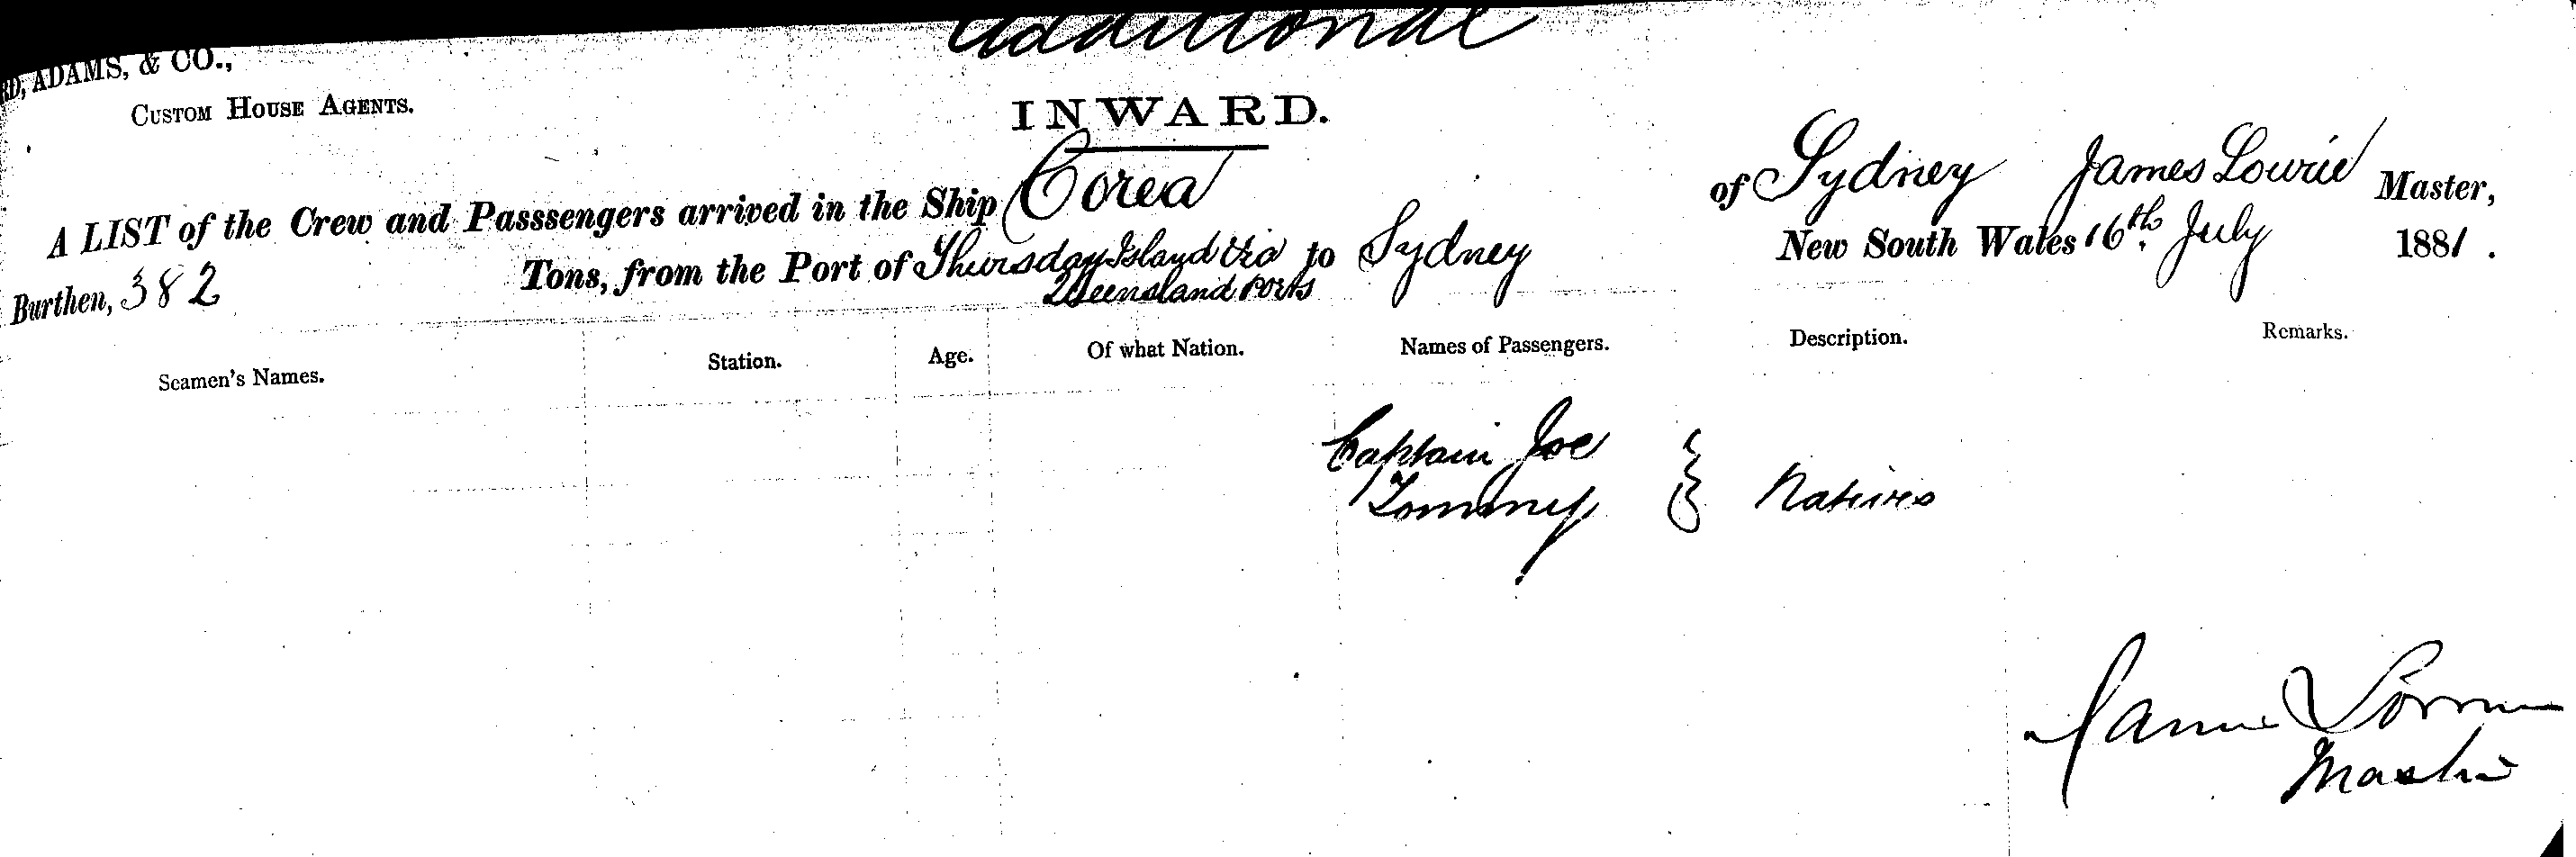 Additional
RD, ADAMS, & CO.,
CUSTOM HOUSE AGENTS.
INWARD.
A LIST of the Crew and Passsengers arrived in the Ship Corea of Sydney James Lowrie Master,
Burthen, 382 Tons, from the Port of Thursday Island via Queensland Ports to Sydney New South Wales 16th July 1881.
Seamen's Names. Station. Age. Of what Nation. Names of Passengers. Description. Remarks.
Captain Joe
Tommy } Natives
James Lowrie
Master